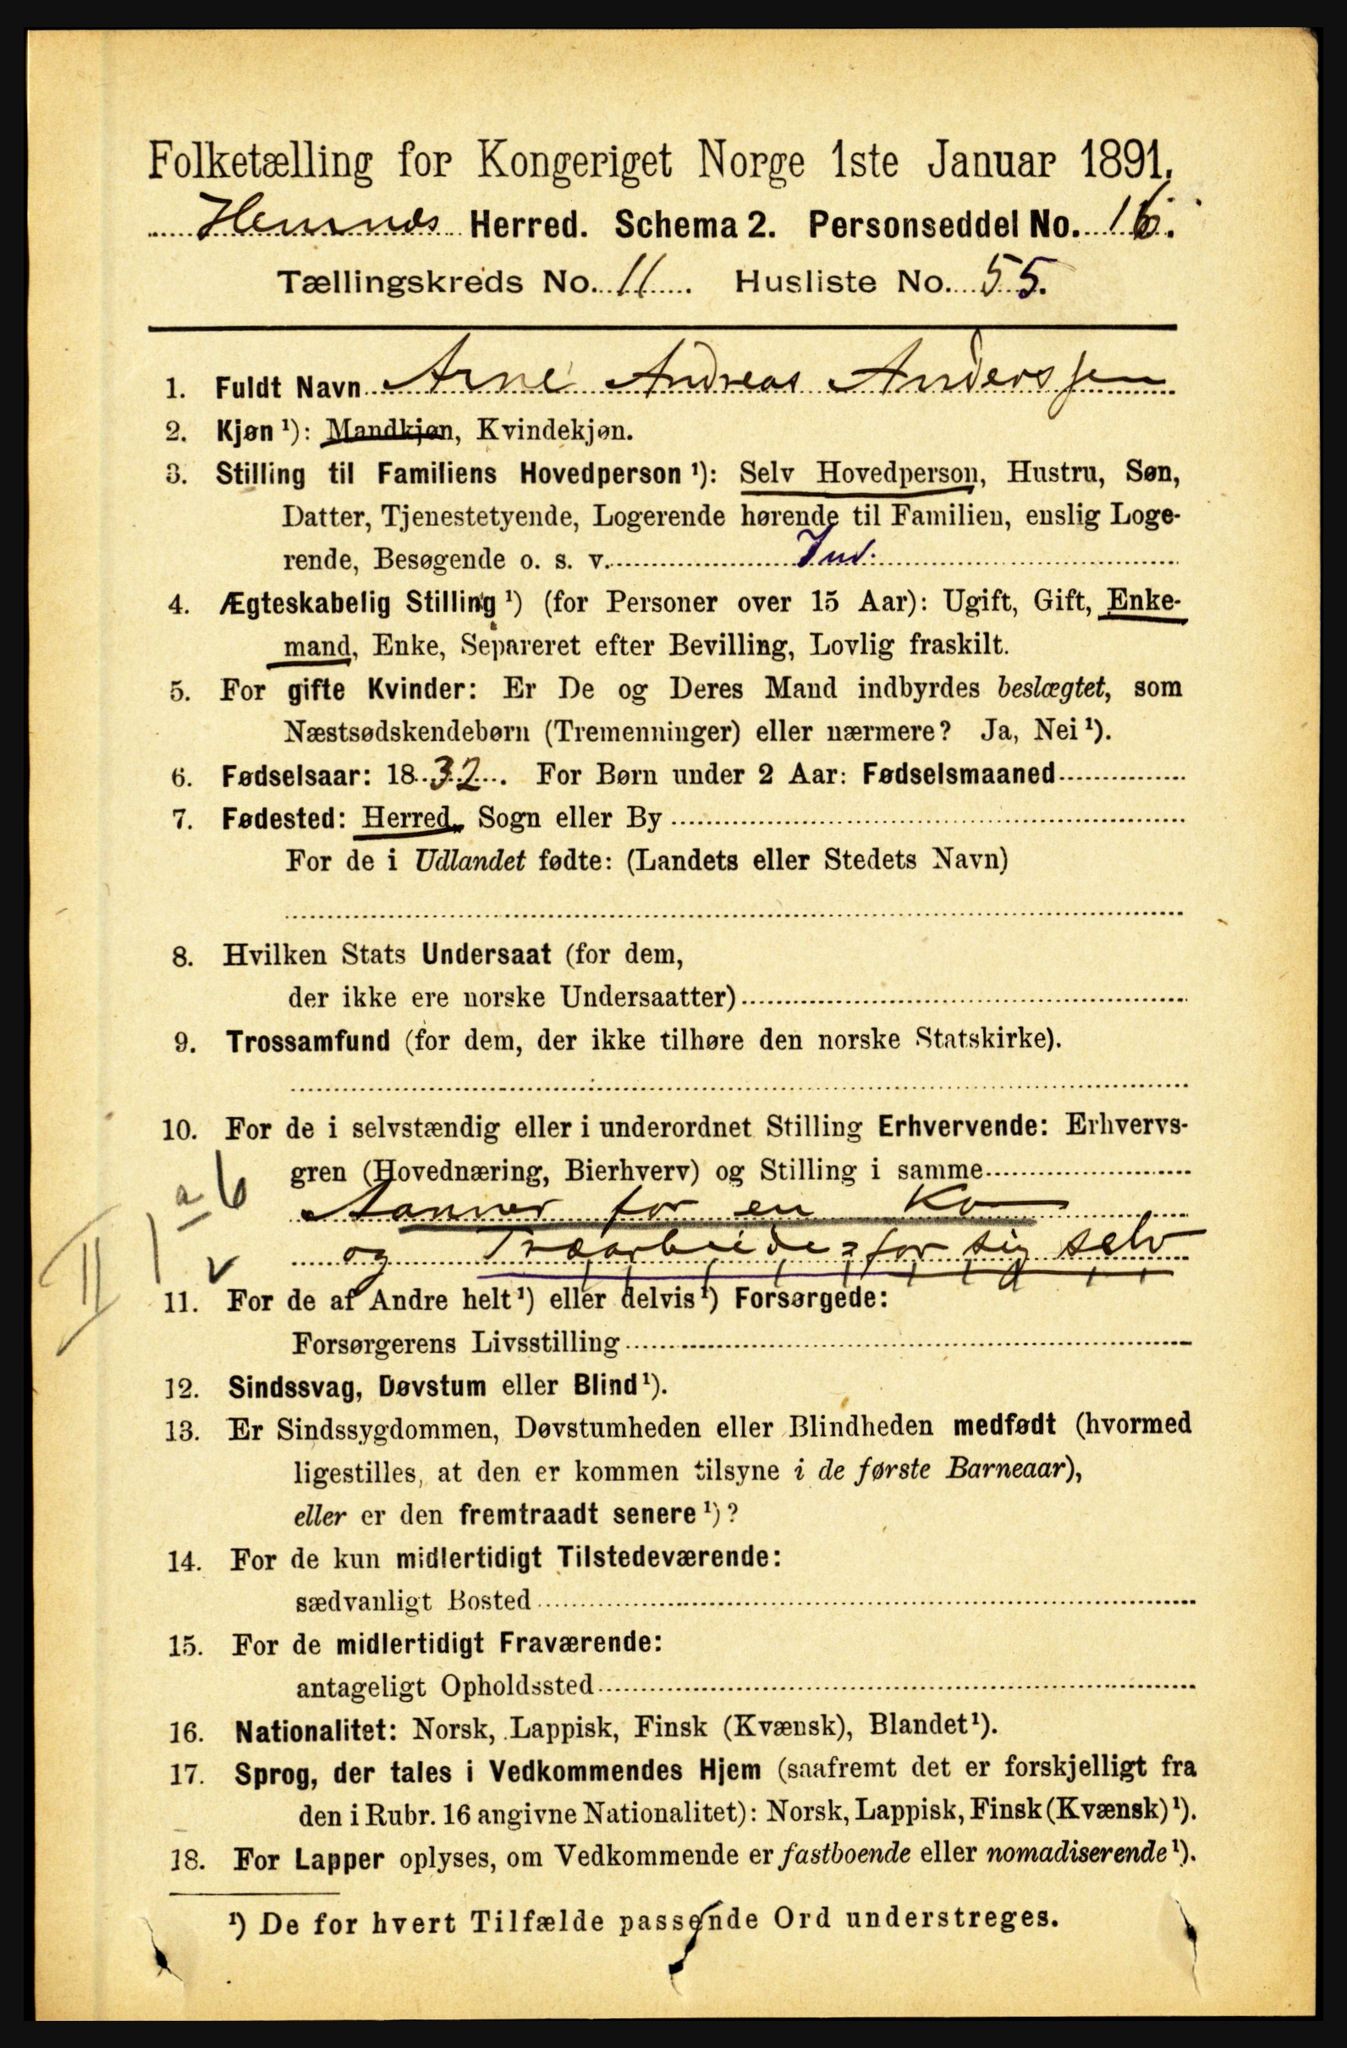 Folketælling for Kongeriget Norge 1ste Januar 1891.
Hemnæs Herred. Schema 2. Personseddel No. 16.
Tællingskreds No. 11. Husliste No. 55.
1. Fuldt Navn Arne Andreas Anderssen
2. Kjøn ¹): Mandkjøn, Kvindekjøn.
3. Stilling til Familiens Hovedperson ¹): Selv Hovedperson, Hustru, Søn,
Datter, Tjenestetyende, Logerende hørende til Familien, enslig Loge-
rende, Besøgende o. s. v. Ind.
4. Ægteskabelig Stilling ¹) (for Personer over 15 Aar): Ugift, Gift, Enke-
mand, Enke, Separeret efter Bevilling, Lovlig fraskilt.
5. For gifte Kvinder: Er De og Deres Mand indbyrdes beslægtet, som
Næstsødskendebørn (Tremenninger) eller nærmere? Ja, Nei ¹).
6. Fødselsaar: 1832. For Børn under 2 Aar: Fødselsmaaned
7. Fødested: Herred, Sogn eller By
For de i Udlandet fødte: (Landets eller Stedets Navn)
8. Hvilken Stats Undersaat (for dem,
der ikke ere norske Undersaatter)
9. Trossamfund (for dem, der ikke tilhøre den norske Statskirke).
10. For de i selvstændig eller i underordnet Stilling Erhvervende: Erhvervs-
gren (Hovednæring, Bierhverv) og Stilling i samme
a 6
Aanner for en Ko
II 1 v og Træarbeide for sig selv
11. For de af Andre helt ¹) eller delvis ¹) Forsørgede:
Forsørgerens Livsstilling
12. Sindssvag, Døvstum eller Blind ¹).
13. Er Sindssygdommen, Døvstumheden eller Blindheden medfødt (hvormed
ligestilles, at den er kommen tilsyne i de første Barneaar),
eller er den fremtraadt senere ¹)?
14. For de kun midlertidigt Tilstedeværende:
sædvanligt Bosted
15. For de midlertidigt Fraværende:
antageligt Opholdssted
16. Nationalitet: Norsk, Lappisk, Finsk (Kvænsk), Blandet ¹).
17. Sprog, der tales i Vedkommendes Hjem (saafremt det er forskjelligt fra
den i Rubr. 16 angivne Nationalitet): Norsk, Lappisk, Finsk (Kvænsk) ¹).
18. For Lapper oplyses, om Vedkommende er fastboende eller nomadiserende ¹).
¹) De for hvert Tilfælde passende Ord understreges.